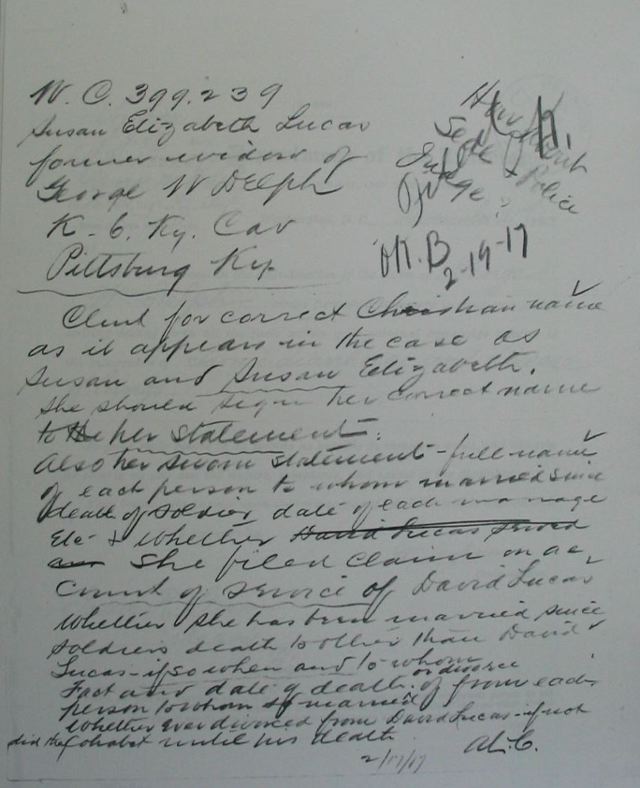 W. C. 399.239
Susan Elizabeth Lucas
former widow of
George W Delph
K - 6. Ky. Cav
Pittsburg Ky.
2-19-17
Clmt for correct Christian name
as it appears in the case as
Susan and Susan Elizabeth.
She should sign her correct name
to the her statement.
Also her sworn statement - full name
of each person to whom married since
death of soldier date of each marriage
Etc & whether David Lucas served
she filed claim on ac-
count of service of David Lucas
Whether she has been married since
soldiers death to other than David
Lucas - if so when and to whom
Fact and date of death or divorce of from each
person to whom so married
Whether ever divorced from David Lucas - if not
did they cohabit until his death.
2/17/17